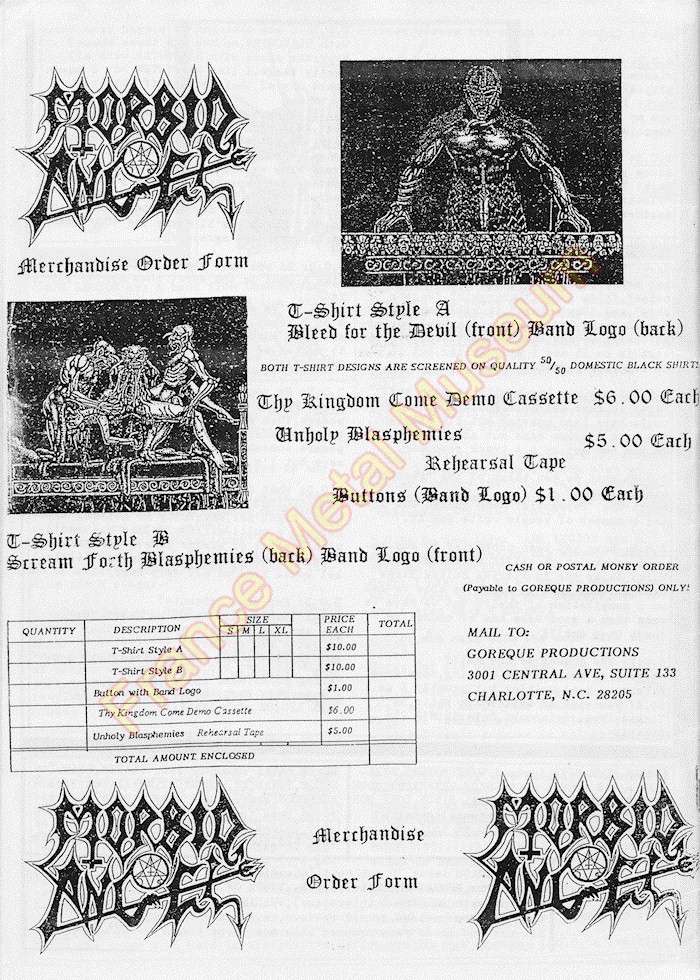 MORBID
ANGEL
Merchandise Order Form
T-Shirt Style A
Bleed for the Devil (front) Band Logo (back)
BOTH T-SHIRT DESIGNS ARE SCREENED ON QUALITY 50/50 DOMESTIC BLACK SHIRTS
Thy Kingdom Come Demo Cassette $6.00 Each
Unholy Blasphemies $5.00 Each
Rehearsal Tape
Buttons (Band Logo) $1.00 Each
T-Shirt Style B
Scream Forth Blasphemies (back) Band Logo (front)
CASH OR POSTAL MONEY ORDER
(Payable to GOREQUE PRODUCTIONS) ONLY!
QUANTITY DESCRIPTION SIZE PRICE EACH TOTAL
S M L XL
T-Shirt Style A $10.00
T-Shirt Style B $10.00
Button with Band Logo $1.00
Thy Kingdom Come Demo Cassette $6.00
Unholy Blasphemies Rehearsal Tape $5.00
TOTAL AMOUNT ENCLOSED
MAIL TO:
GOREQUE PRODUCTIONS
3001 CENTRAL AVE, SUITE 133
CHARLOTTE, N.C. 28205
MORBID
ANGEL
Merchandise
Order Form
MORBID
ANGEL
France Metal Museum